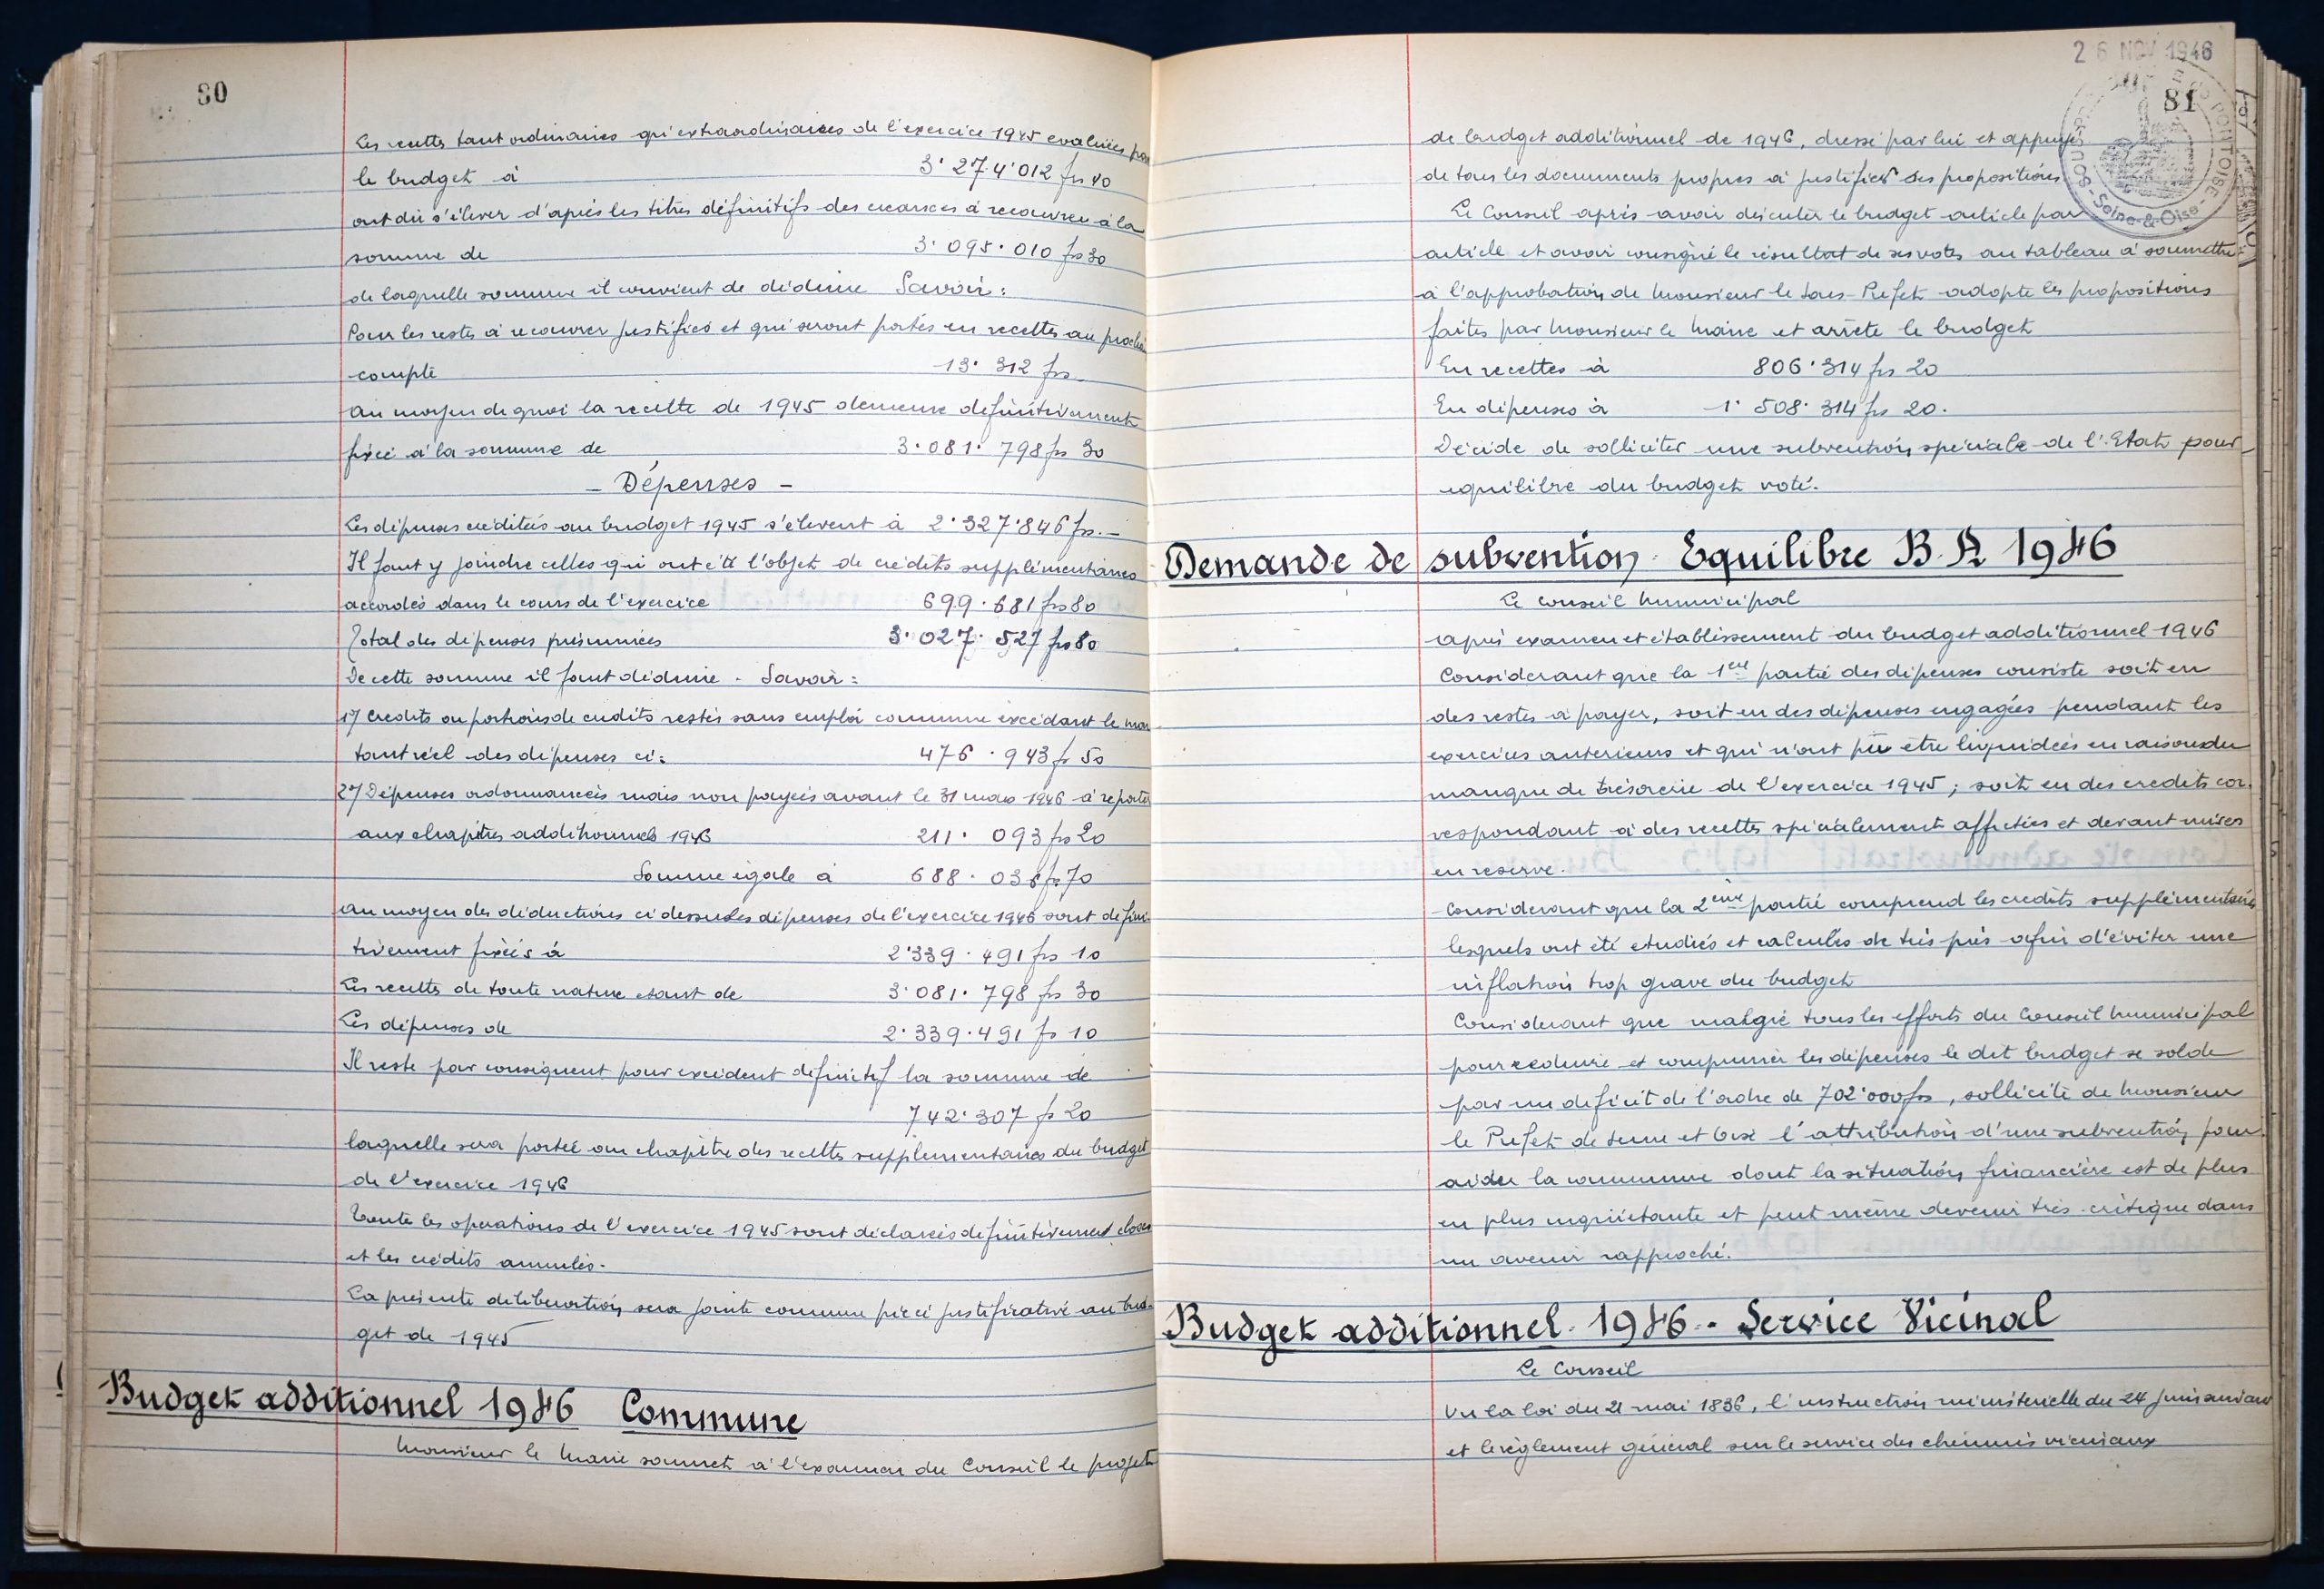 80
Les recettes tant ordinaires qu'extraordinaires de l'exercice 1945 evaluées par
le budget à 3.274.012 frs 40
ont dû s'élever d'après les titres définitifs des créances à recouvrer à la
somme de 3.095.010 frs 30
de laquelle somme il convient de déduire Savoir :
Pour les restes à recouvrer justifiés et qui seront portés en recettes au prochain
compte 13.312 frs
au moyen de quoi la recette de 1945 demeure définitivement
fixée à la somme de 3.081.798 frs 30
- Dépenses -
Les dépenses créditées au budget 1945 s'élèvent à 2.327.846 frs.-
Il faut y joindre celles qui ont été l'objet de crédits supplémentaires
accordés dans le cours de l'exercice 699.681 frs 80
Total des dépenses présumées 3.027.527 frs 80
De cette somme il faut déduire - Savoir :
1°/ Credits ou portions de crédits restés sans emploi comme excédant le mon
tant réel des dépenses ci : 476.943 fr 50
2°/ Dépenses ordonnancées mais non payées avant le 31 mars 1946 à reporter
aux chapitres additionnels 1946 211.093 frs 20
Somme égale à 688.036 frs 70
au moyen des déductions ci dessus les dépenses de l'exercice 1945 sont défini-
tivement fixées à 2.339.491 frs 10
Les recettes de toute nature étant de 3.081.798 frs 30
Les dépenses de 2.339.491 frs 10
Il reste par conséquent pour excédent définitif la somme de
742.307 fr 20
laquelle sera portée au chapitre des recettes supplémentaires du budget
de l'exercice 1946
Toutes les opérations de l'exercice 1945 sont déclarées définitivement closes
et les crédits annulés.
La présente délibération sera jointe comme pièce justificative au bud-
get de 1945
Budget additionnel 1946 Commune
Monsieur le Maire soumet à l'examen du Conseil le projet
26 NOV 1946
81
SOUS-PRÉFECTURE DE PONTOISE
-Seine-&-Oise-
de budget additionnel de 1946, dressé par lui et appuyé
de tous les documents propres à justifier ses propositions
Le Conseil après avoir discuter le budget article par
article et avoir consigné le résultat de ses votes au tableau à soumettre
à l'approbation de Monsieur le Sous-Préfet adopte les propositions
faites par Monsieur le Maire et arrête le budget
En recettes à 806.314 frs 20
En dépenses à 1.508.314 frs 20.
Décide de solliciter une subvention spéciale de l'Etat pour
equilibre du budget voté.
Demande de subvention. Equilibre B.A 1946
Le conseil Municipal
après examen et établissement du budget additionnel 1946
Considerant que la 1ere partie des dépenses consiste soit en
des restes à payer, soit en des dépenses engagées pendant les
exercices antérieurs et qui n'ont pu être liquidées en raison du
manque de trésorerie de l'exercice 1945 ; soit en des credits cor-
respondant à des recettes spécialement affectées et devant mises
en reserve.
Considerant que la 2ème partie comprend les credits supplémentaires
lesquels ont été etudiés et calculés de très près afin d'éviter une
inflation trop grave du budget
Considerant que malgré tous les efforts du Conseil Municipal
pour reduire et comprimer les dépenses le dit budget se solde
par un deficit de l'ordre de 702.000 frs, sollicite de Monsieur
le Prefet de Seine et Oise l'attribution d'une subvention pour
aider la commune dont la situation financière est de plus
en plus inquiétante et peut même devenir très critique dans
un avenir rapproché.
Budget additionnel 1946. - Service Vicinal
Le Conseil
Vu la loi du 21 mai 1836, l'instruction ministérielle du 24 juin suivant
et le règlement général sur le service des chemins vicinaux